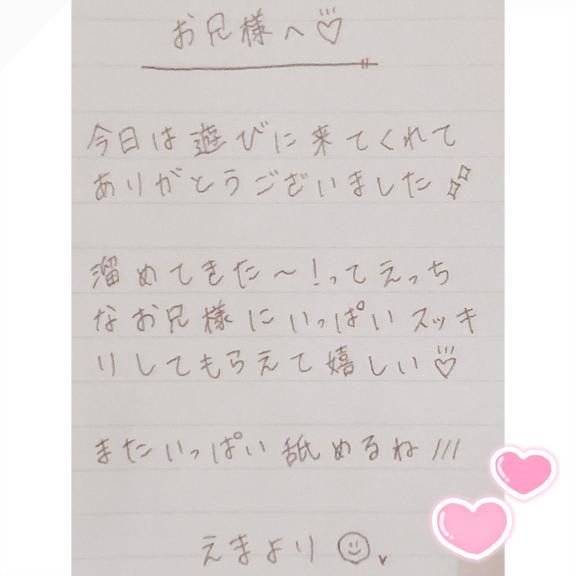 お兄様へ♡
今日は遊びに来てくれて
ありがとうございました
溜めてきた〜!ってえっち
なお兄様にいっぱいスッキ
リしてもらえて嬉しい♡
またいっぱい舐めるね///
えまより